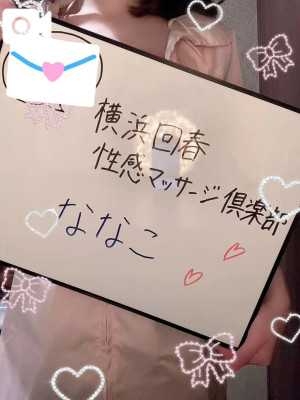 横浜回春
性感マッサージ倶楽部
ななこ